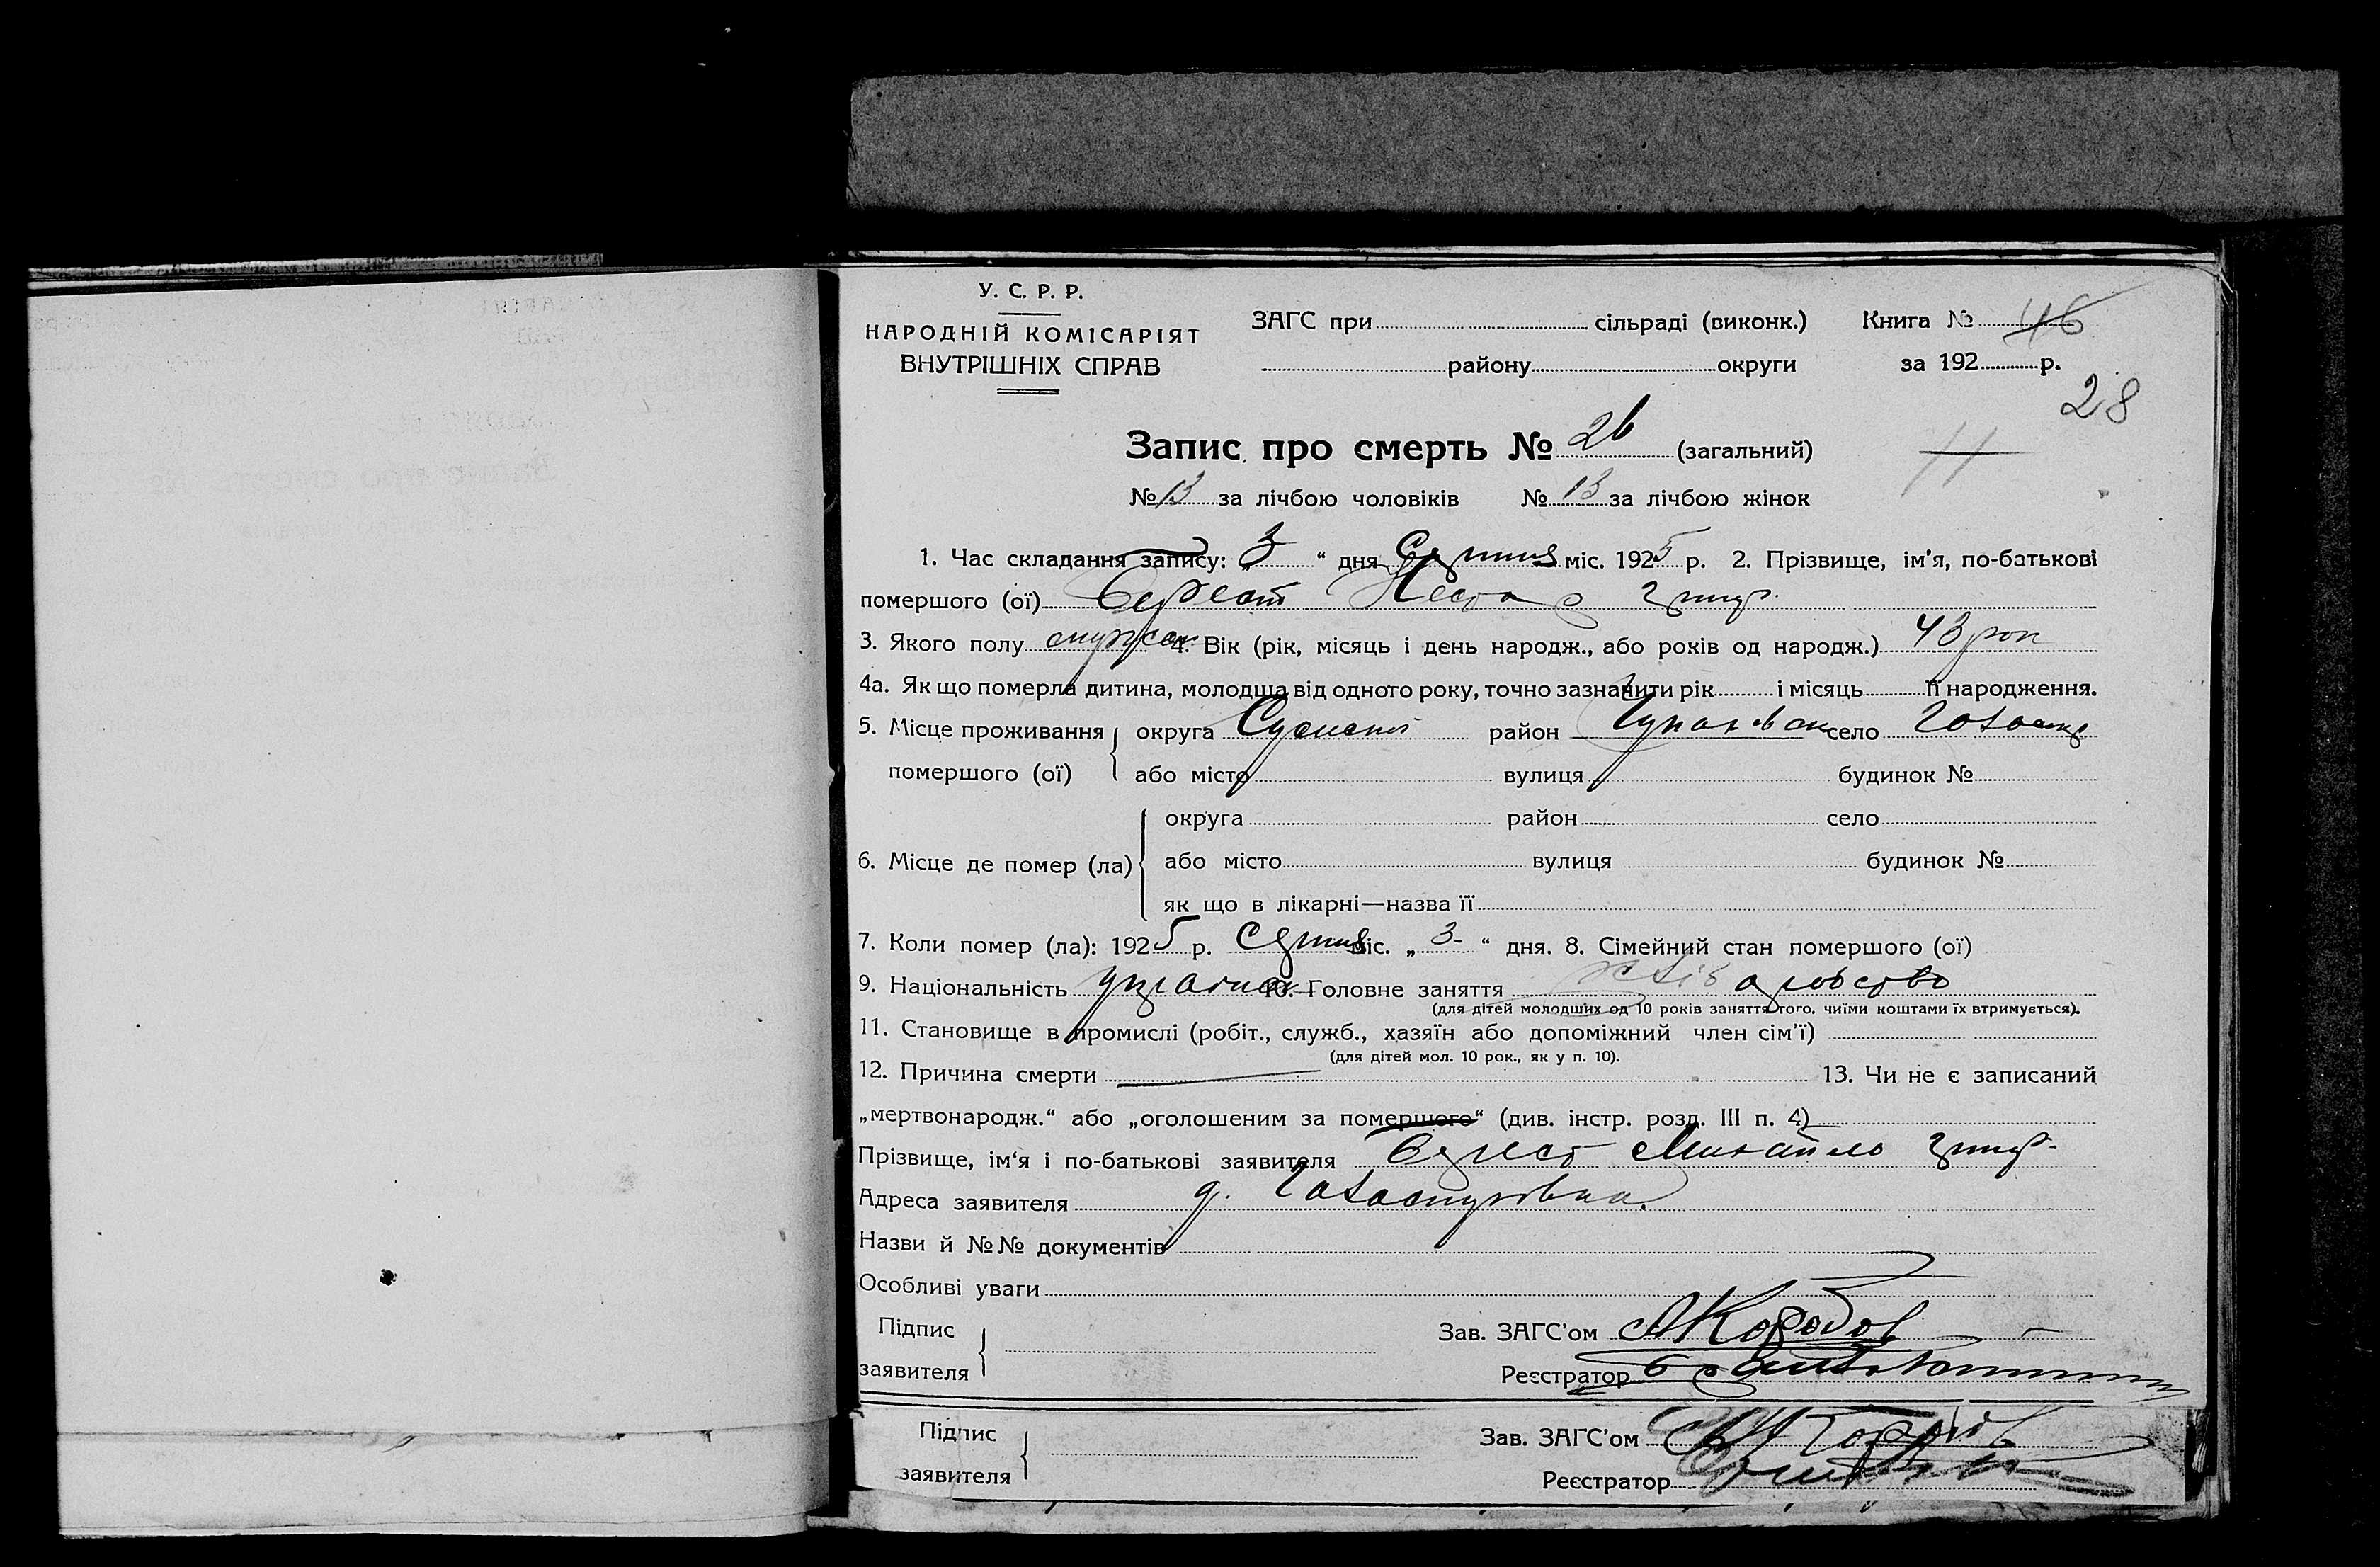 У. С. Р. Р.
НАРОДНІЙ КОМІСАРІЯТ
ВНУТРІШНІХ СПРАВ
ЗАГС при сільраді (виконк.)
району округи
Книга № 46
за 192 р.
28
Запис про смерть № 26 (загальний)
№ 13 за лічбою чоловіків № 13 за лічбою жінок
1. Час складання запису: „ 3 “ дня міс. 1925 р. 2. Прізвище, ім'я, по-батькові
помершого (ої) Берест Григ.
3. Якого полу 4. Вік (рік, місяць і день народж., або років од народж.) 43 рок
4а. Як що померла дитина, молодша від одного року, точно зазначити рік і місяць її народження.
5. Місце проживання помершого (ої) округа Сумській район село
або місто вулиця будинок №
6. Місце де помер (ла) округа район село
або місто вулиця будинок №
як що в лікарні—назва її
7. Коли помер (ла): 1925 р. міс. „ 3 “ дня. 8. Сімейний стан помершого (ої)
9. Національність 10. Головне заняття хліборобство
(для дітей молодших од 10 років заняття того, чиїми коштами їх втримується).
11. Становище в промислі (робіт., служб., хазяїн або допоміжний член сім'ї)
(для дітей мол. 10 рок., як у п. 10).
12. Причина смерти 13. Чи не є записаний
„мертвонародж.“ або „оголошеним за помершого“ (див. інстр. розд. III п. 4)
Прізвище, ім‘я і по-батькові заявителя Берест Михайло Григ.
Адреса заявителя
Назви й №№ документів
Особливі уваги
Підпис заявителя
Зав. ЗАГС'ом
Реєстратор
Підпис заявителя
Зав. ЗАГС'ом
Реєстратор